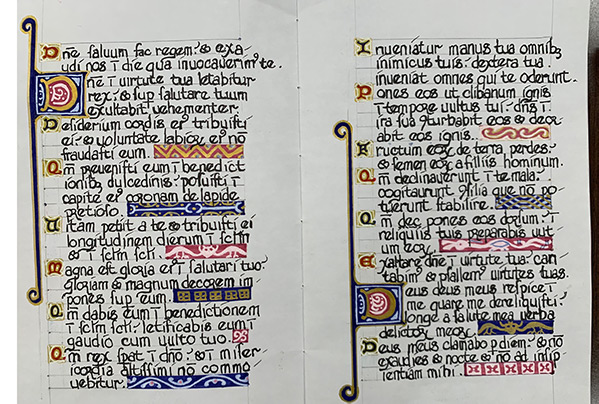 Dn̄e saluum fac regem: & exa
udi nos ī die qua inuocauerim᷒ te.
Dn̄e ī uirtute tua letabitur
rex: & sup salutare tuum
exultabit uehementer.
Desiderium cordis ei᷒ tribuisti
ei: & uoluntate labioꝝ ei᷒ nō
fraudasti eum.
Qm̄ preuenisti eum ī benedict
ionib᷒ dulcedinis: posuisti ī
capite ei᷒ coronam de lapide
pretioso.
Uitam petiit a te & tribuisti ei
longitudinem dierum ī sc̄lm
& ī sc̄lm sc̄li.
Magna est gloria ei᷒ ī salutari tuo:
gloriam & magnum decorem im
pones sup eum.
Qm̄ dabis eum ī benedictionem
ī sc̄lm sc̄li: letificabis eum ī
gaudio cum uulto tuo.
Qm̄ rex spat ī dn̄o: & ī miser
icordia altissimi no commo
uebitur.
Inueniatur manus tua omnib᷒
inimicus tuis: dextera tua
inueniat omnes qui te oderunt.
Pones eos ut clibanum ignis
ī tempore uultus tui: dn̄s ī
ira sua ꝯturbabit eos & deuor
abit eos ignis.
Fructum eoꝝ de terra perdes:
& semen eoꝝ a filiis hominum.
Qm̄ declinauerunt ī te mala:
cogitauerunt ꝯsilia que nō po
tuerunt stabilire.
Qm̄ dec pones eos dorsum: ī
reliquiis tuis preparabis uult
um eoꝝ.
Exaltare dn̄e ī uirtute tua: can
tabim᷒ & psallem᷒ uirtutes tuas.
Deus deus meus respice ī
me quare me dereliquisti:
longe a salute mea uerba
delictoꝝ meoꝝ.
Deus meus clamabo p diem: & nō
exaudies & nocte & nō ad insip
ientiam mihi.